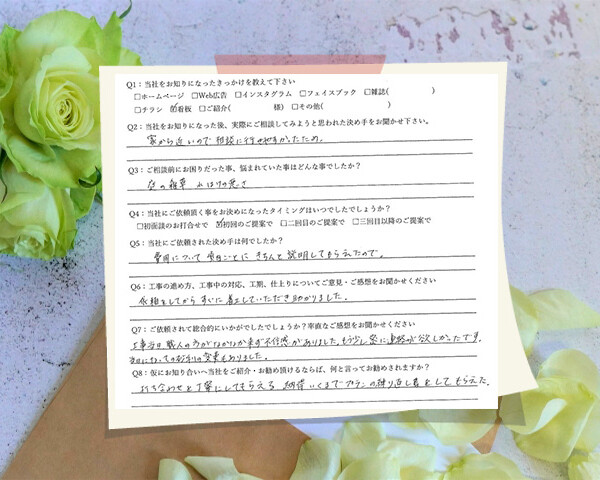 Q1：当社をお知りになったきっかけを教えて下さい
□ホームページ　□Web広告　□インスタグラム　□フェイスブック　□雑誌(　　　　　)
□チラシ　☑看板　□ご紹介(　　　　　様)　□その他(　　　　　)
Q2：当社をお知りになった後、実際にご相談してみようと思われた決め手をお聞かせ下さい。
家から近いので相談に行きやすかったため。
Q3：ご相談前にお困りだった事、悩まれていた事はどんな事でしたか？
庭の雑草　水はけの悪さ
Q4：当社にご依頼頂く事をお決めになったタイミングはいつでしたでしょうか？
□初面談のお打合せで　☑初回のご提案で　□二回目のご提案で　□三回目以降のご提案で
Q5：当社にご依頼された決め手は何でしたか？
費用について項目ごとにきちんと説明してもらえたので。
Q6：工事の進め方、工事中の対応、工期、仕上りについてご意見・ご感想をお聞かせください
依頼をしてからすぐに着工していただき助かりました。
Q7：ご依頼されて総合的にいかがでしたでしょうか？率直なご感想をお聞かせください
工事当日職人の方がなかなか来ず不信感がありました。もう少し密に連絡が欲しかったです。
当日になっての砂利の変更もありました。
Q8：仮にお知り合いへ当社をご紹介・お勧め頂けるならば、何と言ってお勧めされますか？
打ち合わせを丁寧にしてもらえる　納得いくまでプランの練り直し等をしてもらえた。